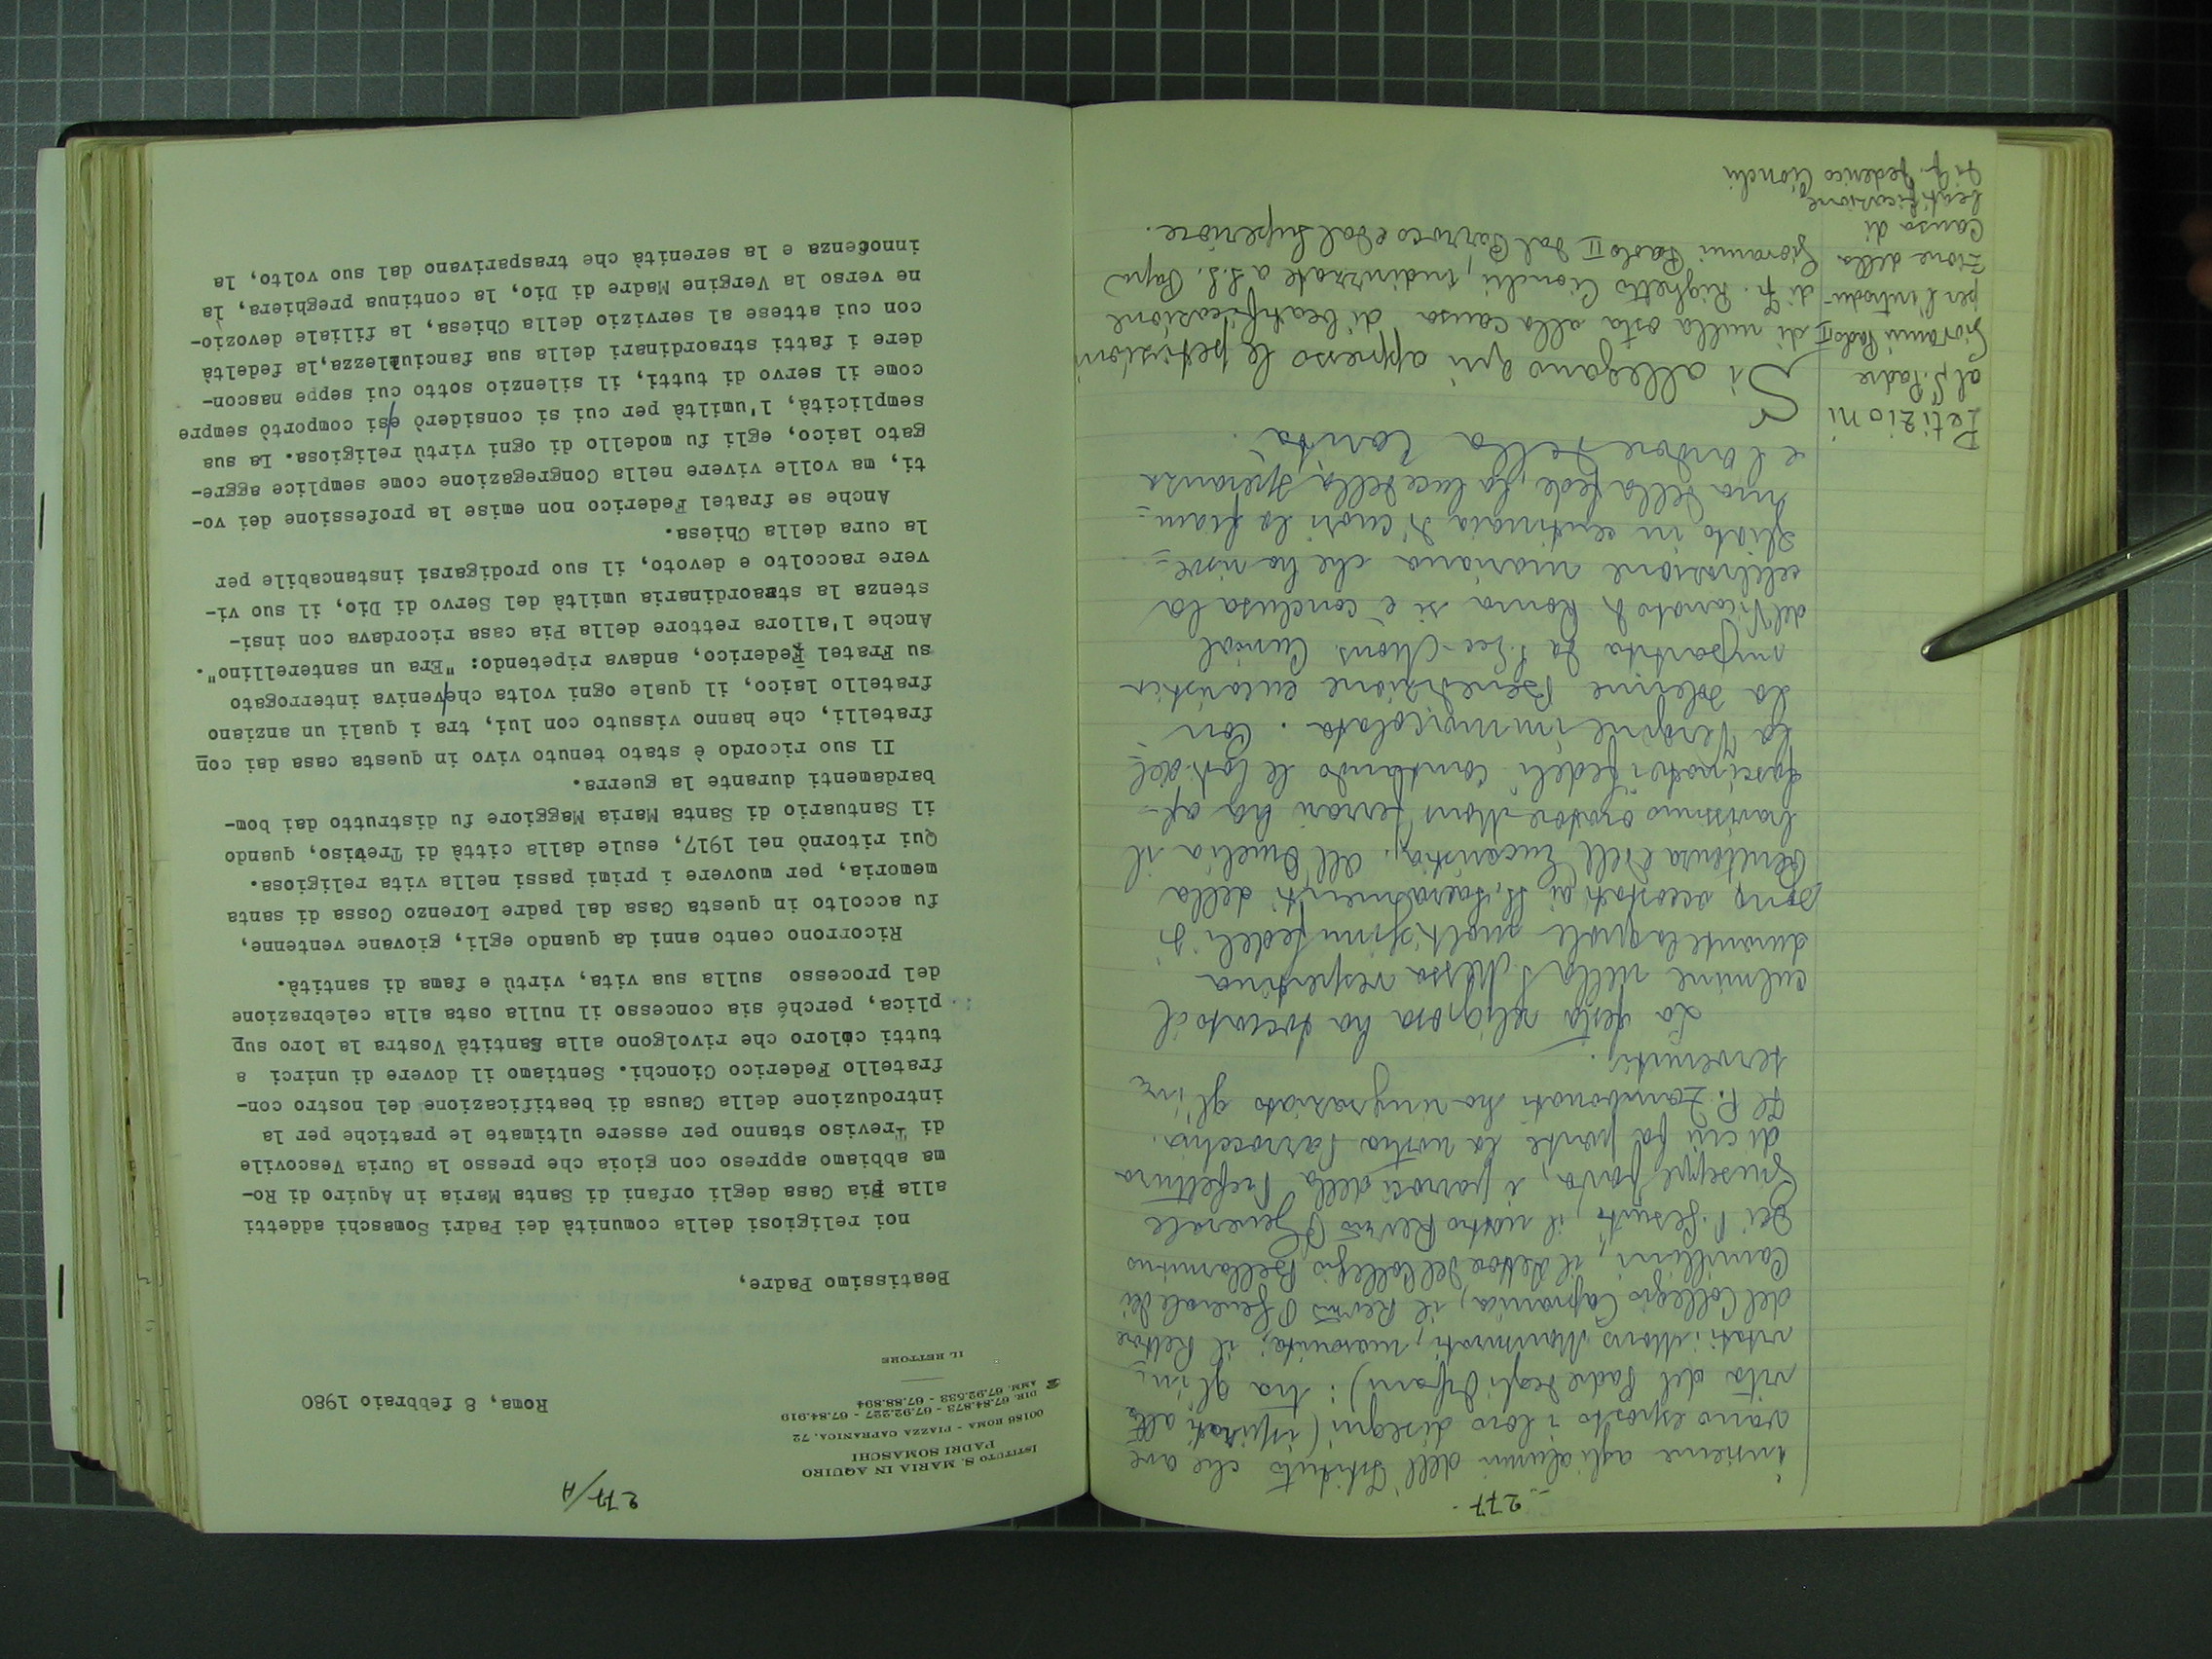 - 277 -
insieme agli alunni dell'Istituto che ave
vano esposto i loro disegni (ispirati alla
vita del Padre degli Orfani): tra gl'in-
vitati: Mons. maronita; il Rettore
del Collegio Capranica, il Rev.mo P. Generale dei
Camilliani, il Rettore del Collegio Bellarmino
dei P. Gesuiti, il nostro Rev.mo P. Generale
Giuseppe Fava, i parroci della Prefettura
di cui fa parte la nostra Parrocchia.
Il P. Zambonati ha ringraziato gl'in
tervenuti.
La festa religiosa ha toccato il
culmine nella S. Messa vespertina
durante la quale moltissimi fedeli si
sono accostati ai SS. Sacramenti della
Penitenza e dell'Eucaristia; all'Omelia il
bravissimo oratore Mons. Ferrari ha af-
fascinato i fedeli cantando le lodi del
la Vergine immacolata. Con
la solenne Benedizione eucaristica
impartita da S. Ecc. Mons. Canisio
del Vicariato di Roma si è conclusa la
celebrazione mariana che ha risve-
gliato in centinaia di cuori la fiam-
ma della fede, la luce della speranza
e l'ardore della Carità.
Petizioni
al S. Padre
Giovanni Paolo II
per l'introdu-
zione della
Causa di
beatificazione
di fr. Federico Cionchi
Si allegano qui appresso le petizioni
di nulla osta alla causa di beatificazione
di Fr. Righetto Cionchi, indirizzate a S.S. Papa
Giovanni Paolo II dal Parroco e dal Superiore.
277/A
ISTITUTO S. MARIA IN AQUIRO
PADRI SOMASCHI
00186 ROMA - PIAZZA CAPRANICA, 72
DIR. 67.84.873 - 67.92.227 - 67.84.919
AMM. 67.92.533 - 67.88.894
IL RETTORE
Roma, 8 febbraio 1980
Beatissimo Padre,
noi religiosi della comunità dei Padri Somaschi addetti
alla Pia Casa degli orfani di Santa Maria in Aquiro di Ro-
ma abbiamo appreso con gioia che presso la Curia Vescovile
di Treviso stanno per essere ultimate le pratiche per la
introduzione della Causa di beatificazione del nostro con-
fratello Federico Cionchi. Sentiamo il dovere di unirci a
tutti coloro che rivolgono alla Santità Vostra la loro sup
plica, perché sia concesso il nulla osta alla celebrazione
del processo sulla sua vita, virtù e fama di santità.
Ricorrono cento anni da quando egli, giovane ventenne,
fu accolto in questa Casa dal padre Lorenzo Cossa di santa
memoria, per muovere i primi passi nella vita religiosa.
Qui ritornò nel 1917, esule dalla città di Treviso, quando
il Santuario di Santa Maria Maggiore fu distrutto dai bom-
bardamenti durante la guerra.
Il suo ricordo è stato tenuto vivo in questa casa dai con
fratelli, che hanno vissuto con lui, tra i quali un anziano
fratello laico, il quale ogni volta che/veniva interrogato
su Fratel Federico, andava ripetendo: "Era un santerellino".
Anche l'allora rettore della Pia casa ricordava con insi-
stenza la straordinaria umiltà del Servo di Dio, il suo vi-
vere raccolto e devoto, il suo prodigarsi instancabile per
la cura della Chiesa.
Anche se fratel Federico non emise la professione dei vo-
ti, ma volle vivere nella Congregazione come semplice aggre-
gato laico, egli fu modello di ogni virtù religiosa. La sua
semplicità, l'umiltà per cui si considerò e/si comportò sempre
come il servo di tutti, il silenzio sotto cui seppe nascon-
dere i fatti straordinari della sua fanciullezza,la fedeltà
con cui attese al servizio della Chiesa, la filiale devozio-
ne verso la Vergine Madre di Dio, la continua preghiera, la
innocenza e la serenità che trasparivano dal suo volto, la